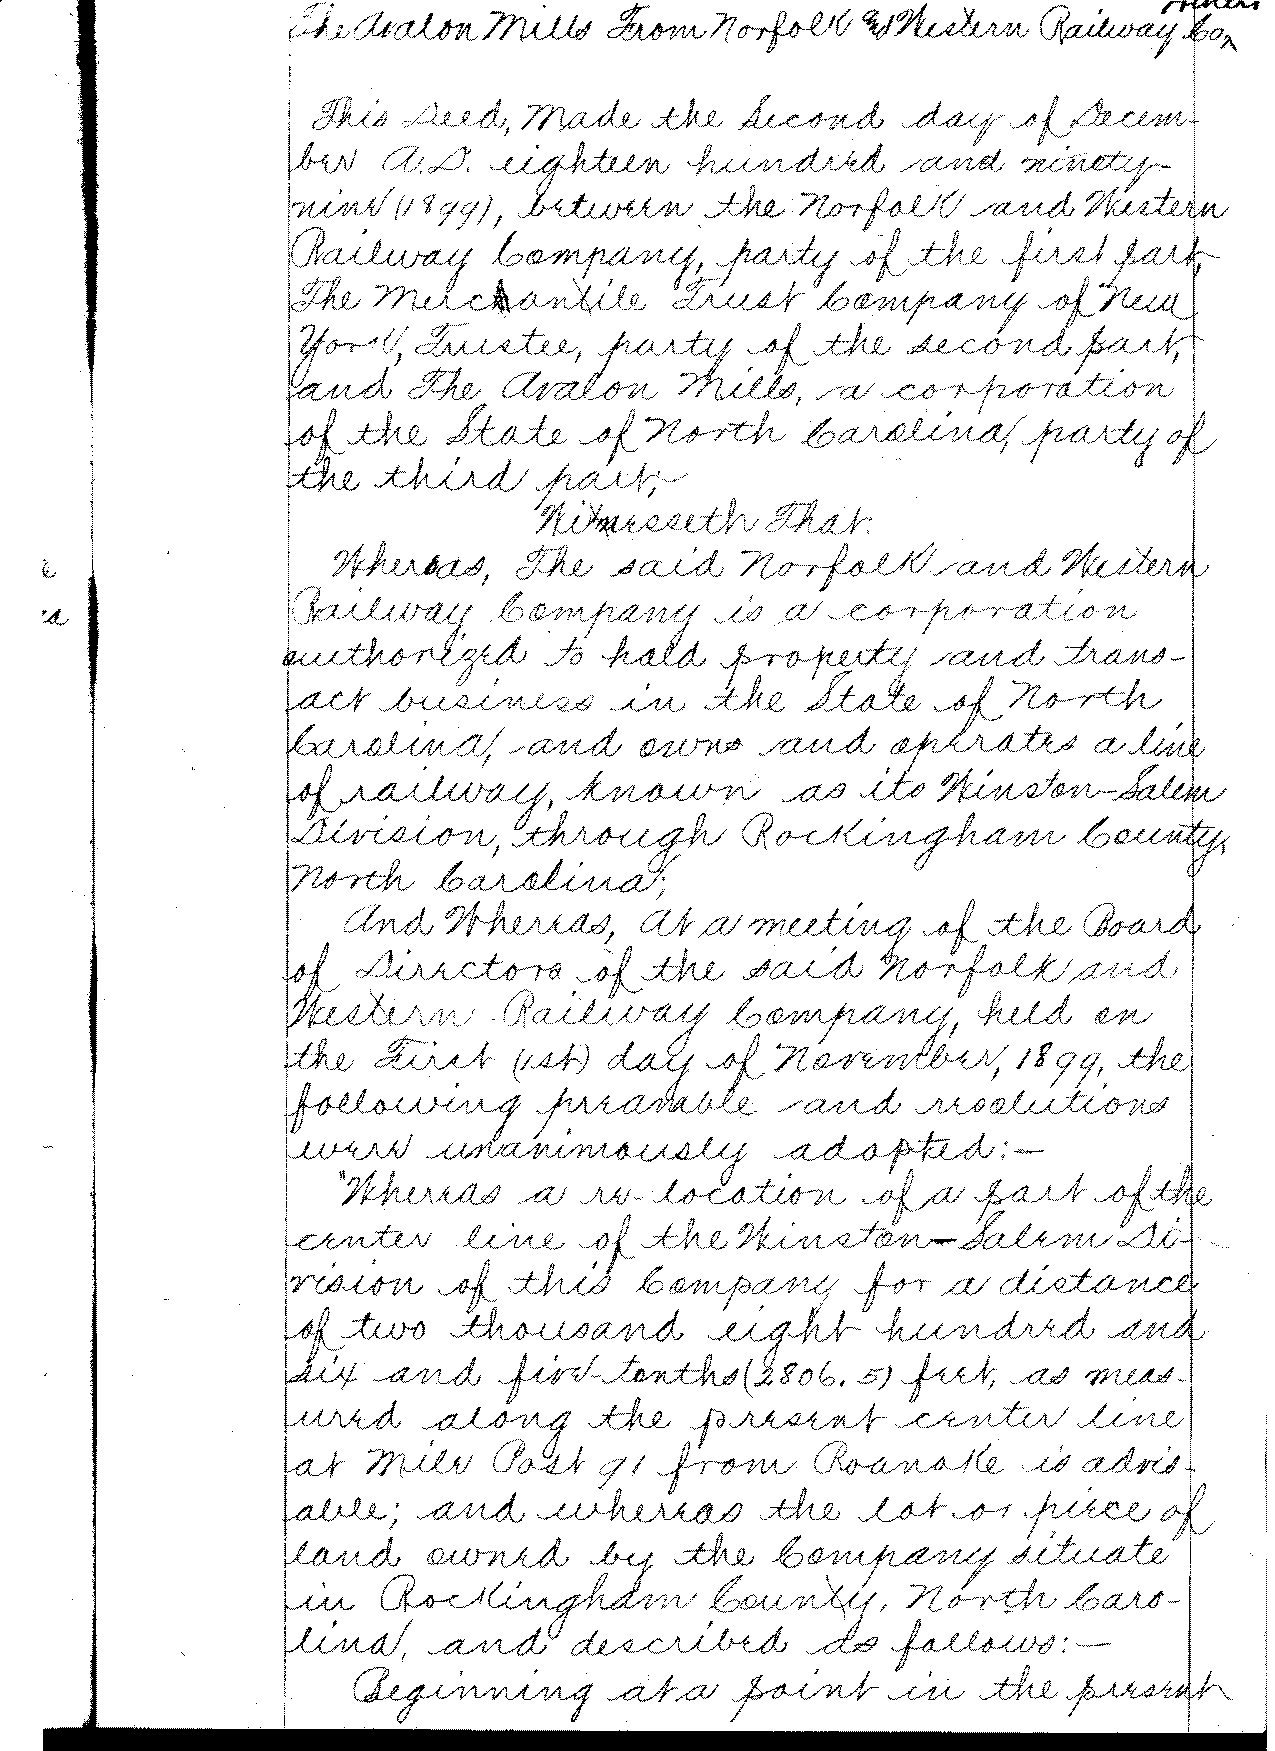 The Avalon Mills From Norfolk and Western Railway Co,
This Deed, Made the Second day of Decem-
ber A.D. eighteen hundred and ninety-
nine (1899), between the Norfolk and Western
Railway Company, party of the first part,
The Merchantile Trust Company of New
York, Trustee, party of the second part,
and The Avalon Mills, a corporation
of the State of North Carolina, party of
the third part;
Witnesseth That:
Whereas, The said Norfolk and Western
Railway Company is a corporation
authorized to hold property and trans-
act business in the State of North
Carolina, and owns and operates a line
of railway, known as its Winston-Salem
Division, through Rockingham County,
North Carolina;
And Whereas, At a meeting of the Board
of Directors of the said Norfolk and
Western Railway Company, held on
the First (1st) day of November, 1899, the
following preamble and resolutions
were unanimously adopted:-
"Whereas a re-location of a part of the
center line of the Winston-Salem Di-
vision of this Company for a distance
of two thousand eight hundred and
six and five-tenths (2806.5) feet, as meas-
ured along the present center line
at Mile Post 91 from Roanoke is advis-
able; and whereas the lot or piece of
land owned by the Company situate
in Rockingham County, North Caro-
lina, and described as follows:-
Beginning at a point in the present